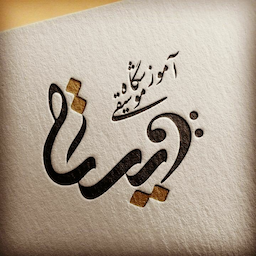 آموزشگاه
موسیقی
ویستا